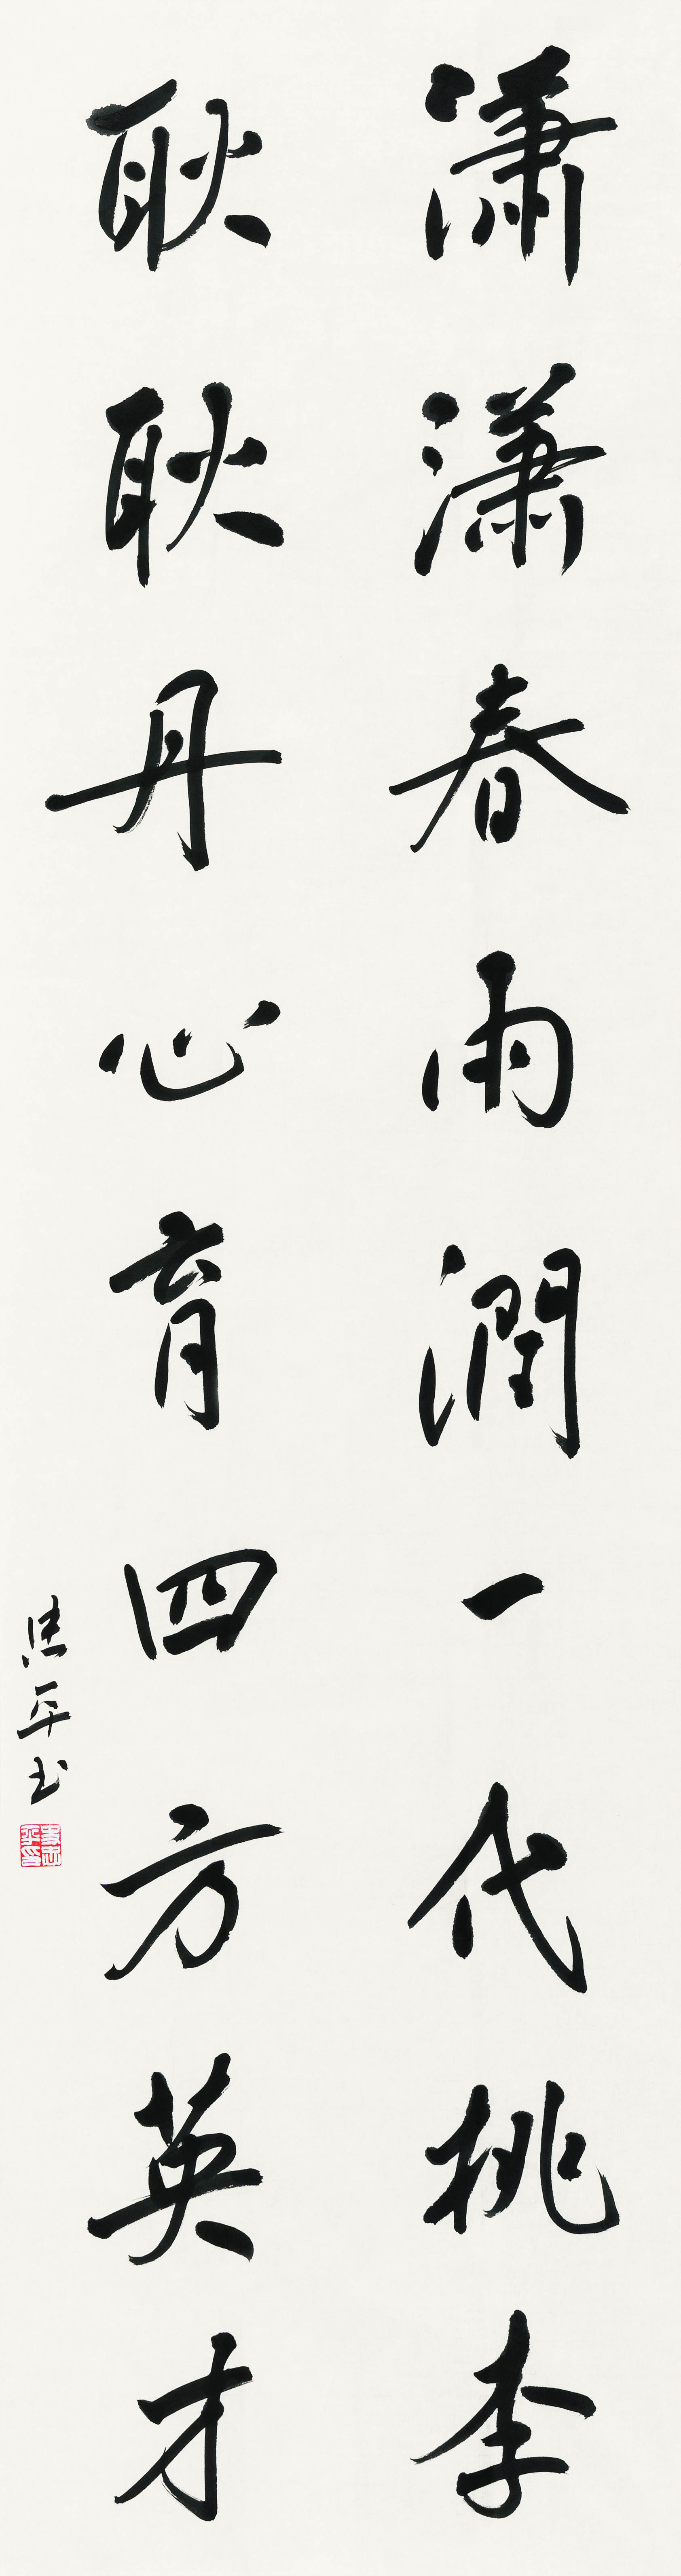 潇潇春雨潤一代桃李
耿耿丹心育四方英才
忠平书